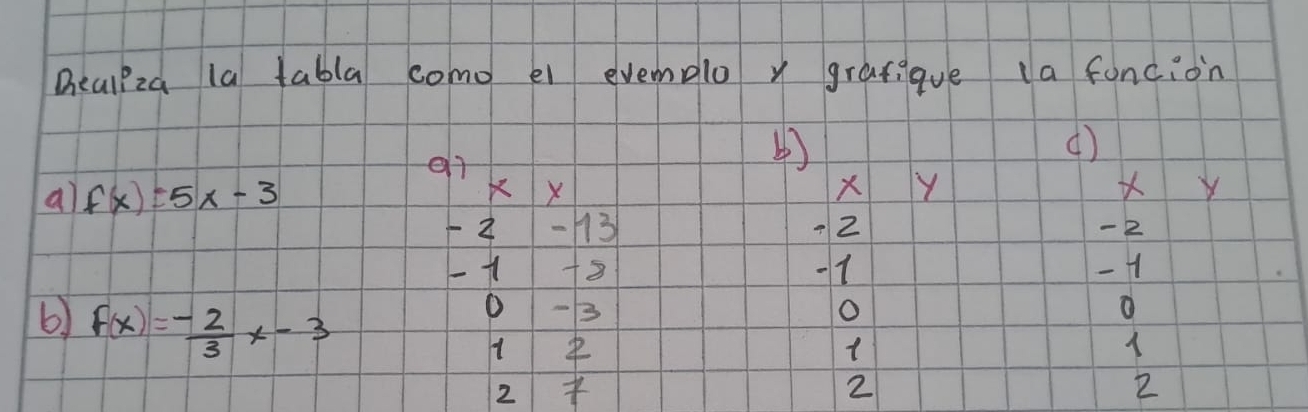 Realiza la tabla como el evemplo y grafique la función
a) f(x)=5x-3
b) f(x)=-2/3 x-3
a)
x y
-2 -13
-1 -8
0 -3
1 2
2 7
b)
x y
-2
-1
0
1
2
c)
x y
-2
-1
0
1
2